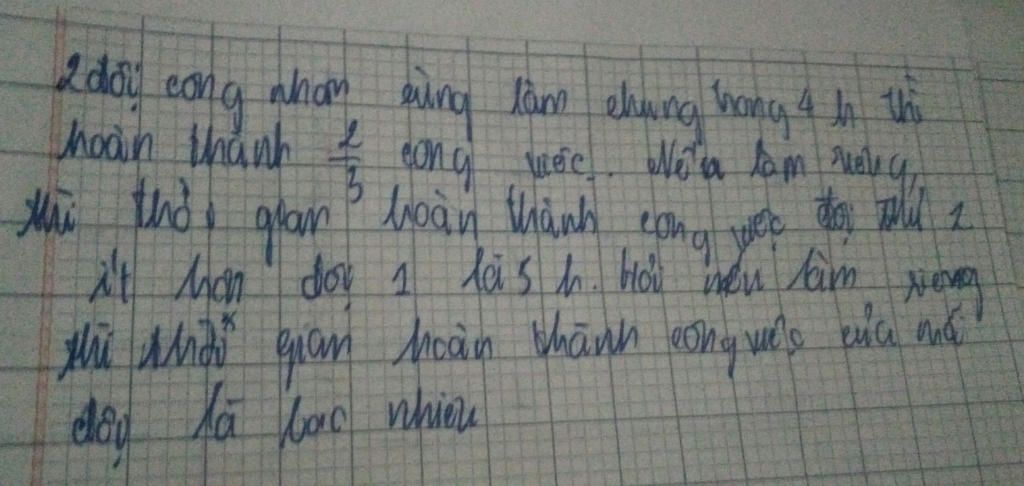 2 đội công nhân cùng làm chung trong 4 h thì
hoàn thành 2/3 công việc. Nếu làm riêng
thì thời gian hoàn thành công việc đội thứ 2
ít hơn đội 1 là 5 h. Hỏi nếu làm riêng
thì thời gian hoàn thành công việc của mỗi
đội là bao nhiêu